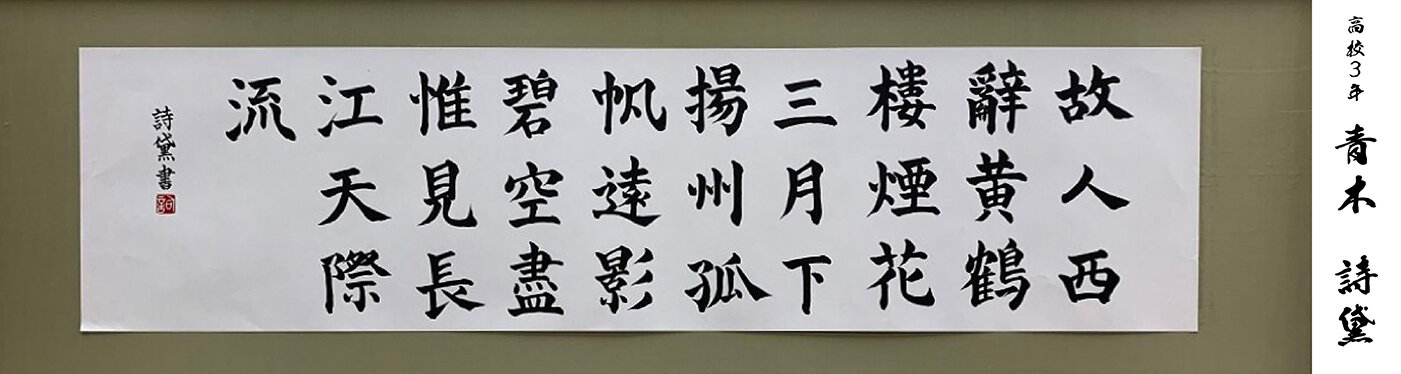 高校3年 青木 詩黛
故人西
辭黄鶴
樓煙花
三月下
揚州孤
帆遠影
碧空盡
惟見長
江天際
流
詩黛書